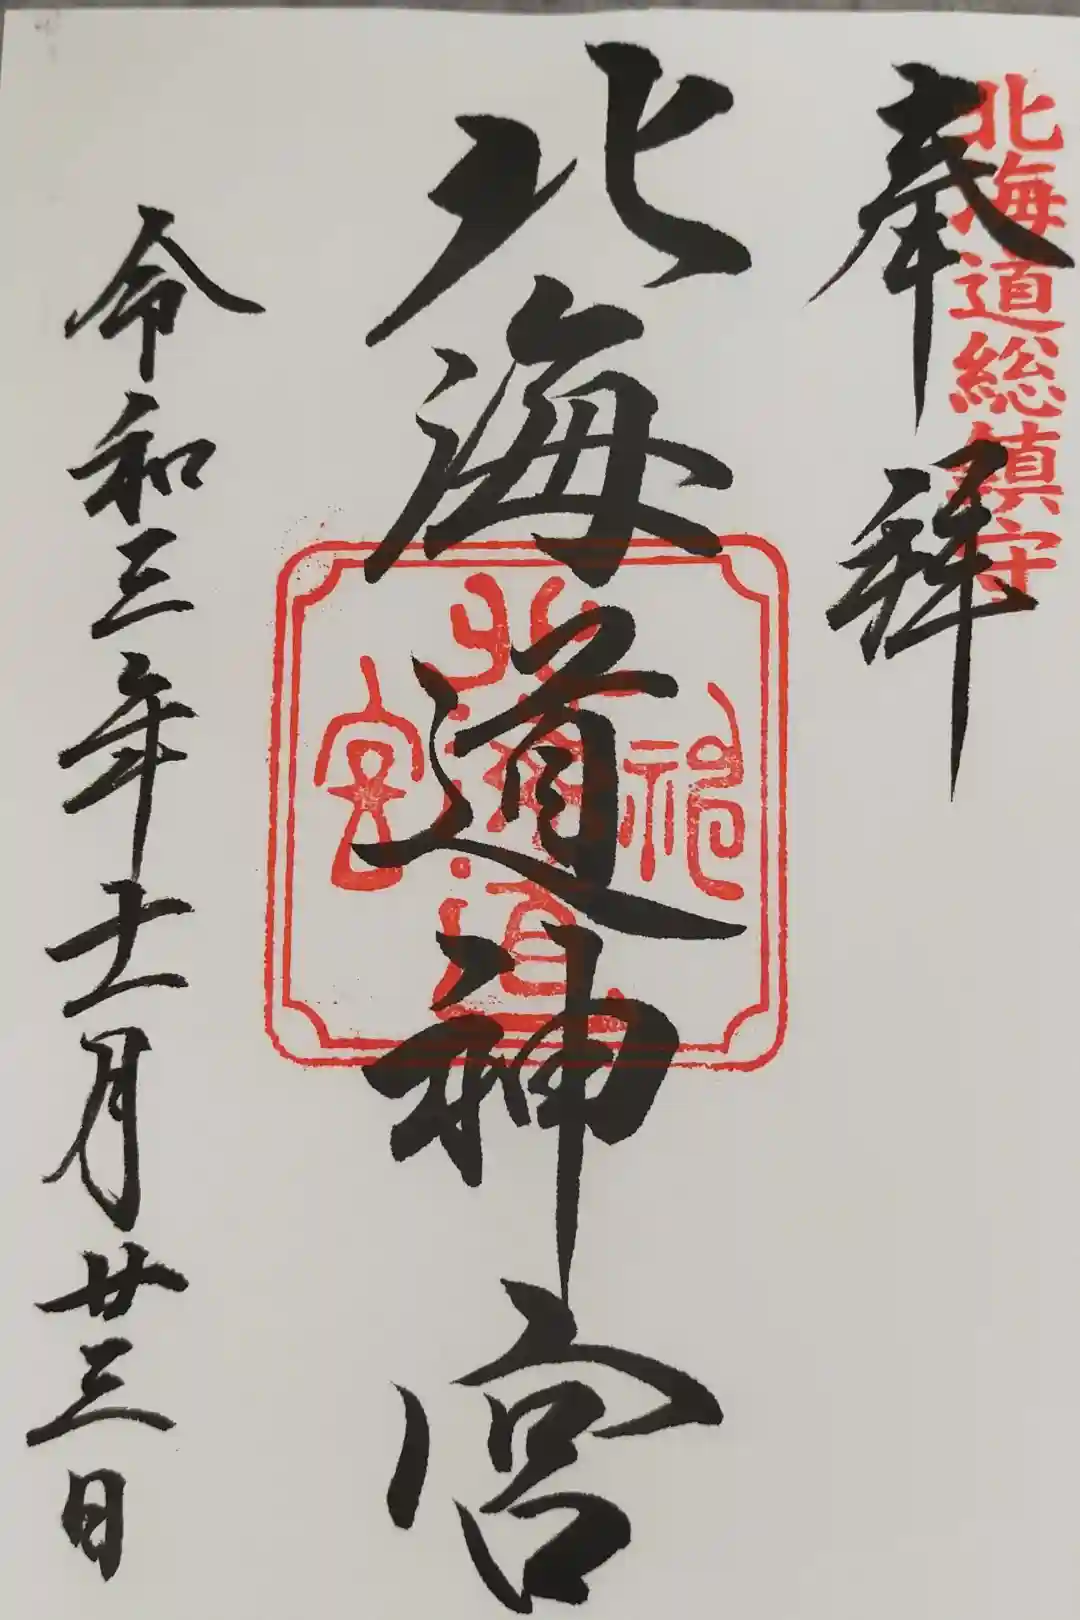 北海道総鎮守
奉拝
北海道神宮
北海道神宮
令和三年十一月廿三日